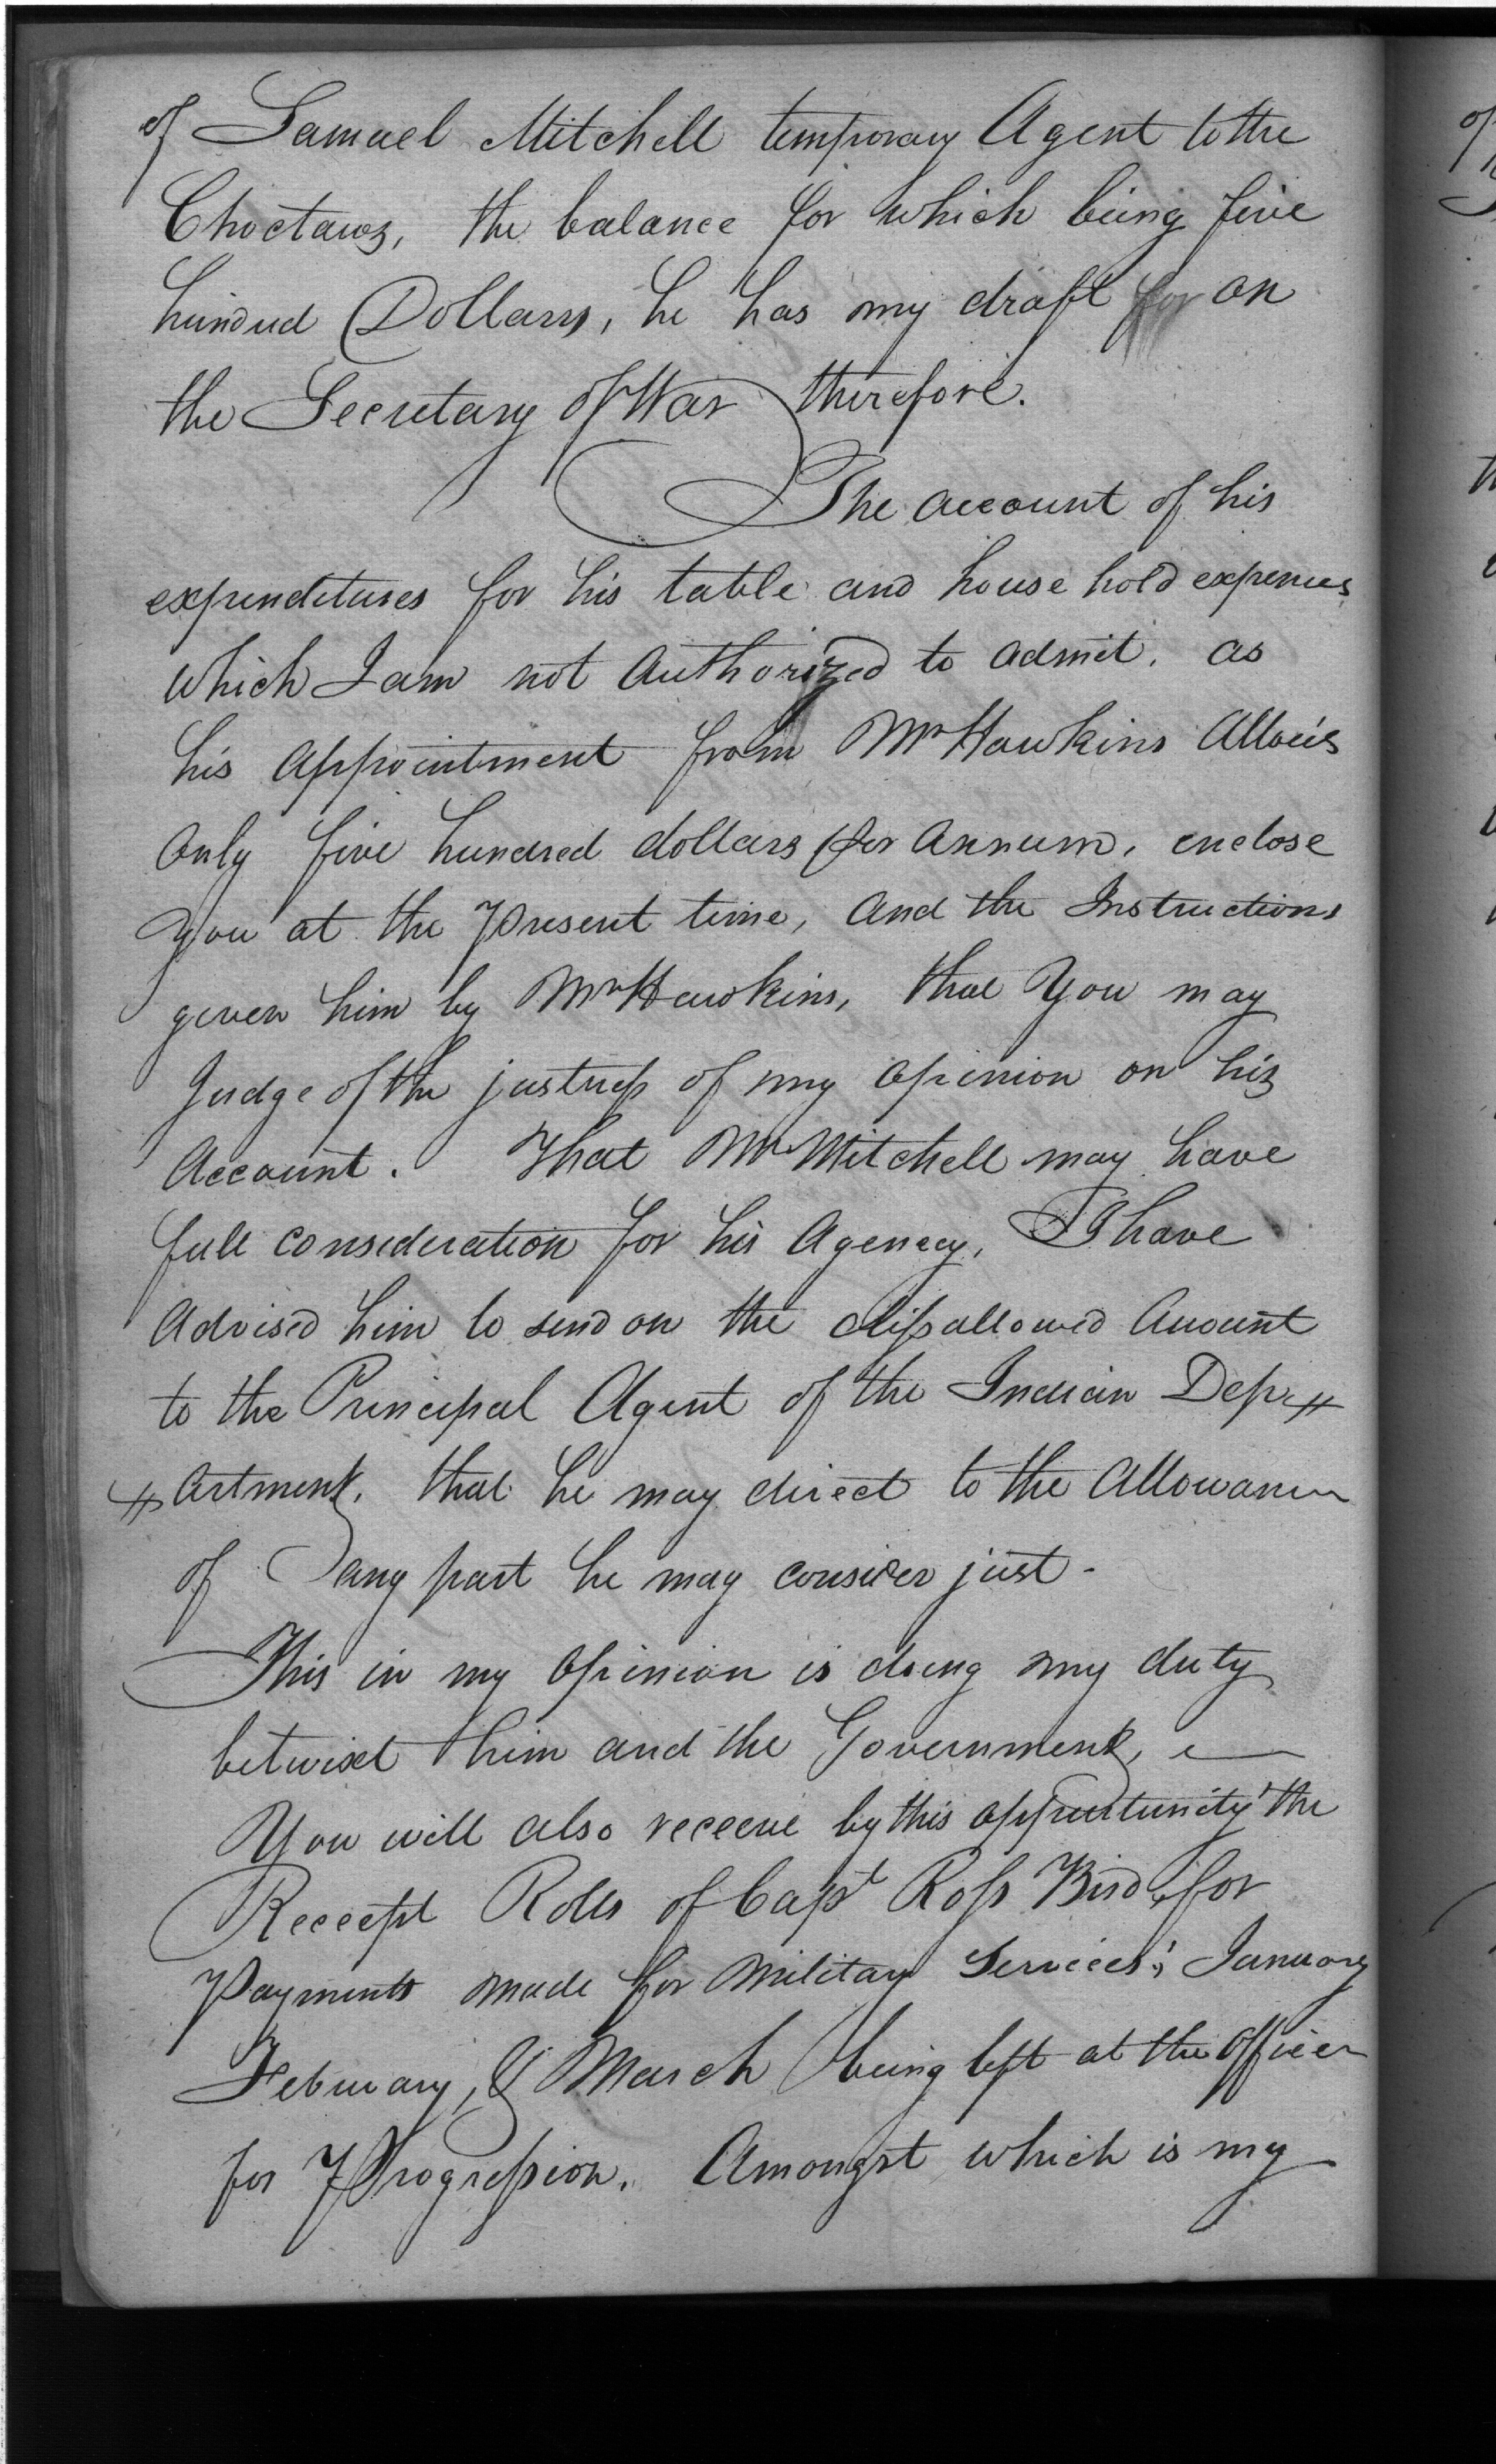 of Samuel Mitchell temporary Agent to the
Choctaws, the balance for which being five
hundred Dollars, he has my draft for on
the Secretary of War therefore.
The account of his
expenditures for his table and house hold expences
which I am not Authorized to admit, as
his Appointment from Mr Hawkins Allows
Only five hundred dollars per Annum, enclose
You at the Present time, and the Instructions
given him by Mr Hawkins, that You may
Judge of the justness of my opinion on his
Account. That Mr Mitchell may have
full consideration for his Agency, I have
Advised him to send on the dissallowed Amount
to the Principal Agent of the Indian Dep=
=artment, that he may direct to the Allowance
of any part he may consider just -
This in my Opinion is doing my duty
betwixt him and the Government, —
You will also receive by this oppurtunity the
Receept Rolls of Capt Ross Bird, for
Payments made for Military Services; January
February, & March being left at the Officer
for Progression. Amongst which is my